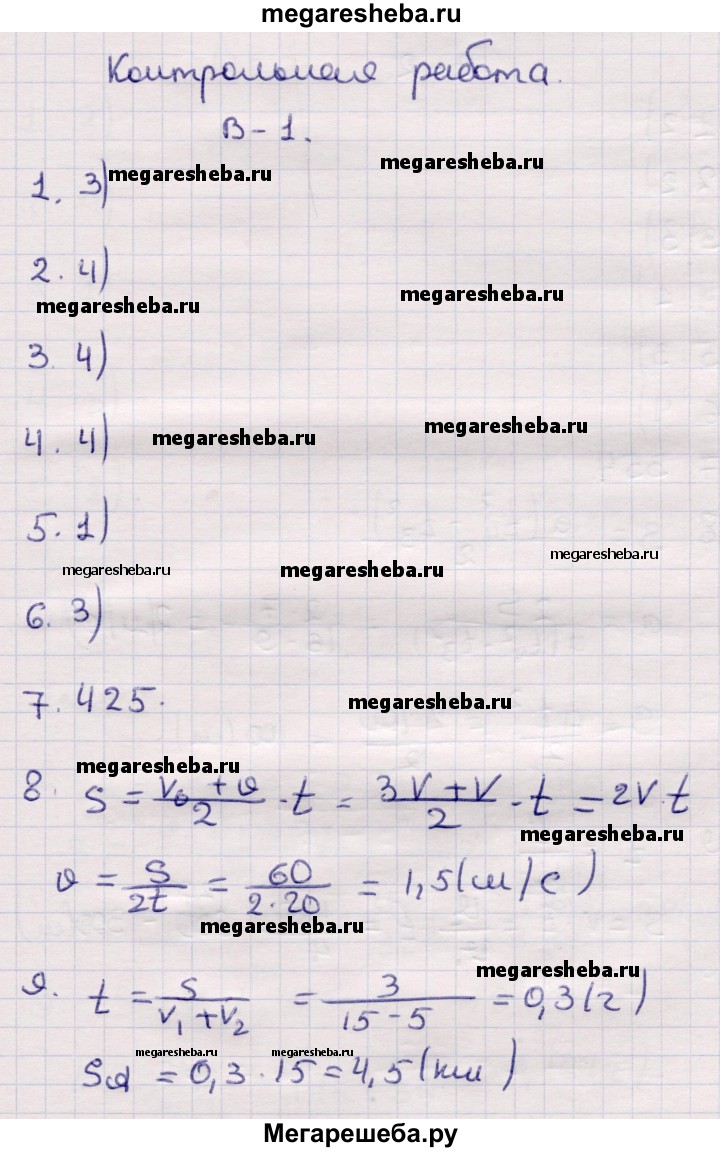 megaresheba.ru
Контрольная работа.
В-1.
1. 3) megaresheba.ru megaresheba.ru
2. 4)
megaresheba.ru megaresheba.ru
3. 4)
4. 4) megaresheba.ru megaresheba.ru
5. 1)
megaresheba.ru megaresheba.ru megaresheba.ru
6. 3)
7. 425. megaresheba.ru
megaresheba.ru
8. S = (V₀ + υ)/2 · t = (3V + V)/2 · t = 2V·t
megaresheba.ru
υ = S/2t = 60/(2·20) = 1,5 (м/с)
megaresheba.ru
megaresheba.ru
9. t = S/(V₁ + V₂) = 3/(15-5) = 0,3 (г)
megaresheba.ru megaresheba.ru
Sд = 0,3 · 15 = 4,5 (км)
Мегарешеба.ру